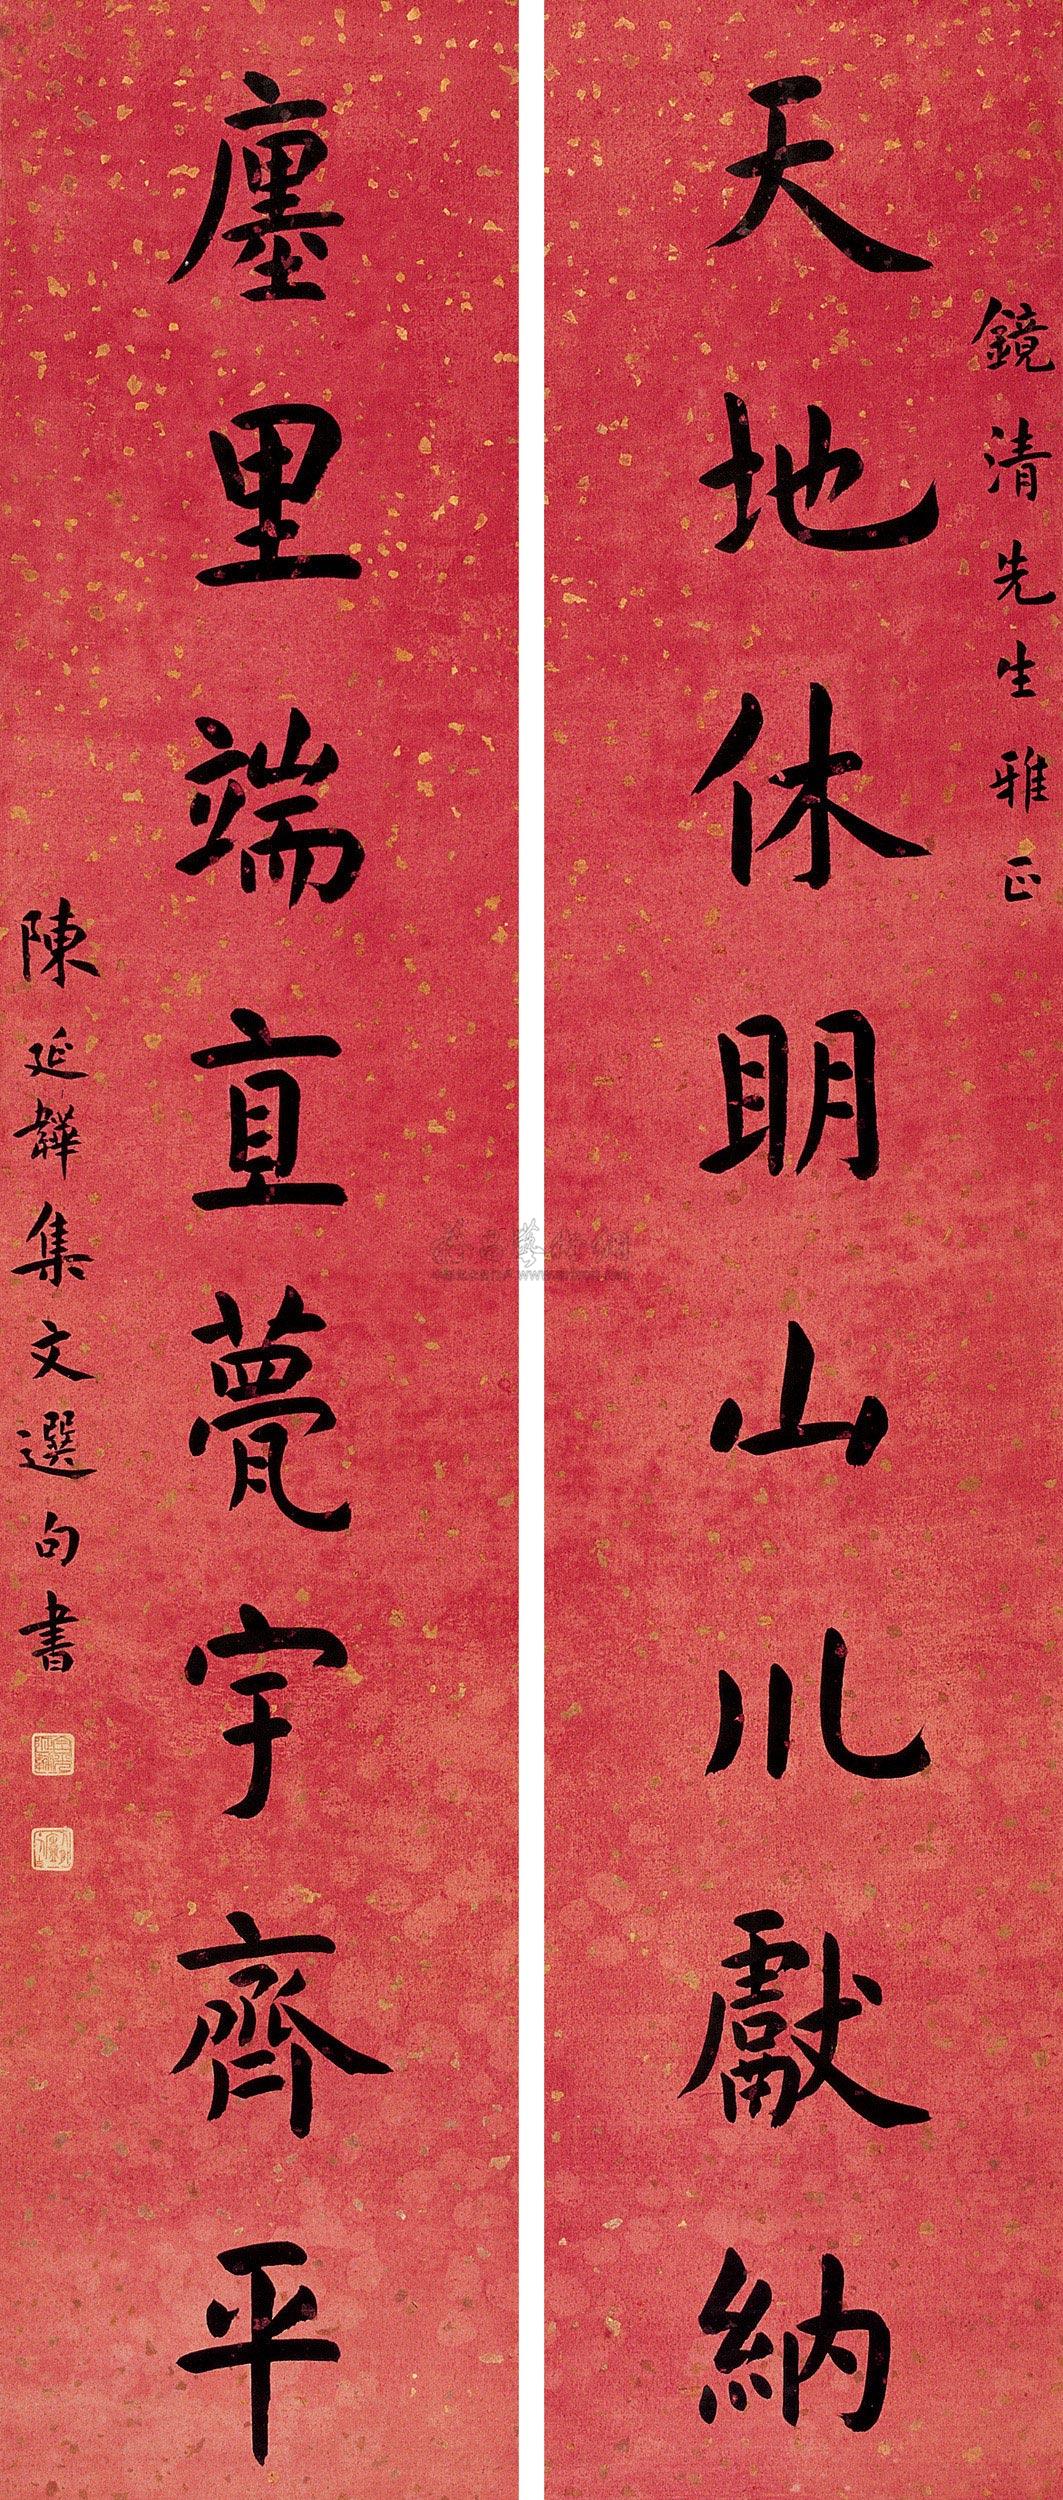 鏡清先生雅正
天地休明山川獻納
廛里端直甍宇齊平
陳延韡集文選句書